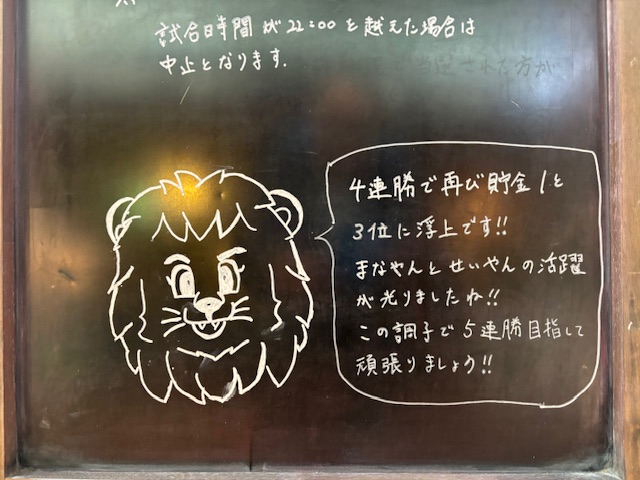 試合時間が22:00を越えた場合は
中止となります.
された方が
4連勝で再び貯金1と
3位に浮上です!!
まなやんとせいやんの活躍
が光りましたね!!
この調子で5連勝目指して
頑張りましょう!!